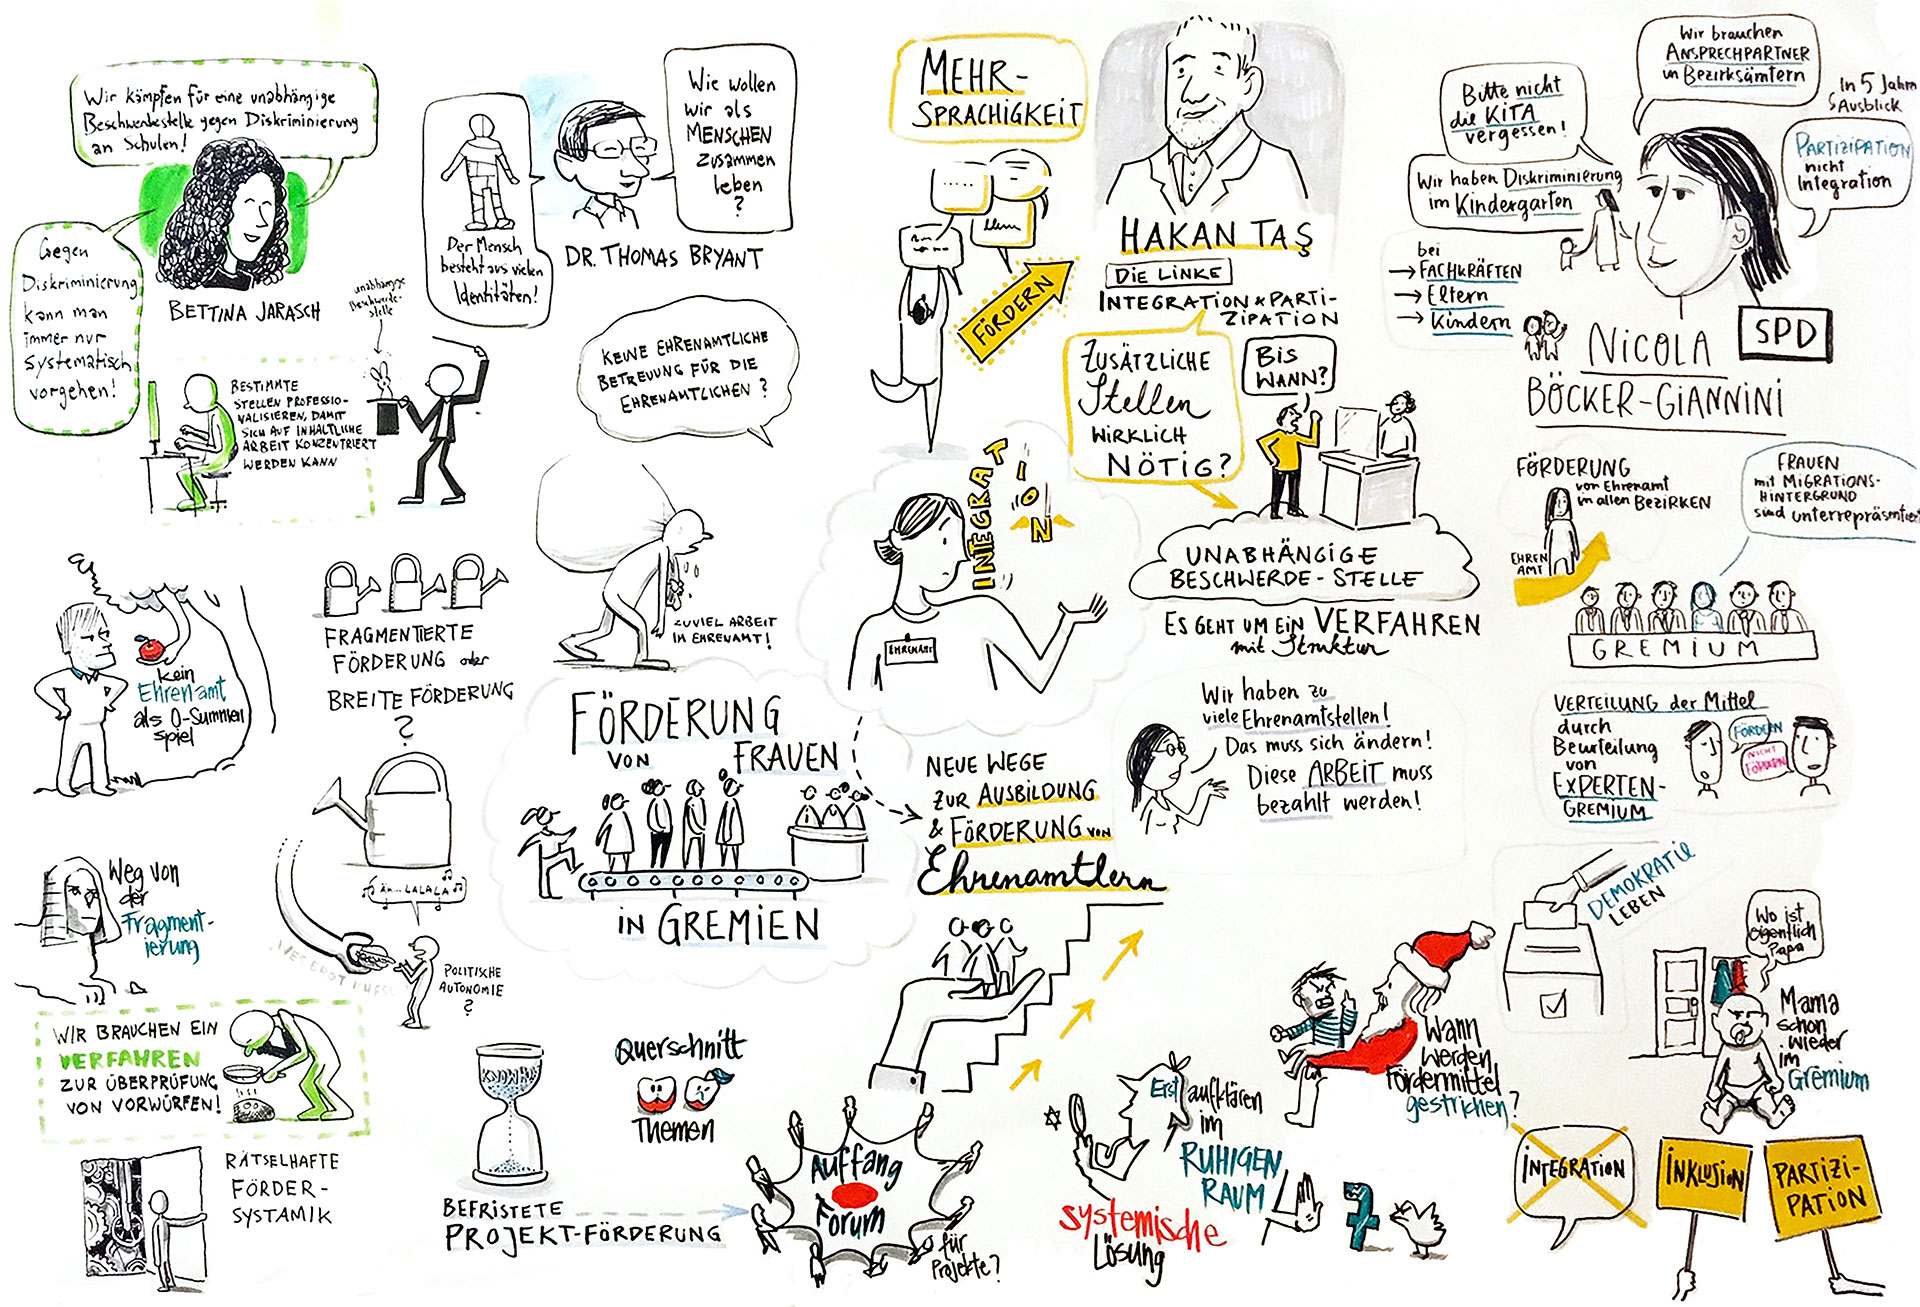 Wir kämpfen für eine unabhängige
Beschwerdestelle gegen Diskriminierung
an Schulen!
Gegen
Diskriminierung
kann man
immer nur
systematisch
vorgehen!
BETTINA JARASCH
unabhängige
Beschwerde-
stelle
BESTIMMTE
STELLEN PROFESSIO-
NALISIEREN, DAMIT
SICH AUF INHALTLICHE
ARBEIT KONZENTRIERT
WERDEN KANN
Der Mensch
besteht aus vielen
Identitäten!
Wie wollen
wir als
MENSCHEN
zusammen
leben
?
DR. THOMAS BRYANT
KEINE EHRENAMTLICHE
BETREUUNG FÜR DIE
EHRENAMTLICHEN?
MEHR-
SPRACHIGKEIT
FÖRDERN
HAKAN TAŞ
DIE LINKE
INTEGRATION & PARTI-
ZIPATION
ZUSÄTZLICHE
Stellen
WIRKLICH
NÖTIG?
BIS
WANN?
UNABHÄNGIGE
BESCHWERDE-STELLE
ES GEHT UM EIN VERFAHREN
mit Struktur
Wir brauchen
ANSPRECHPARTNER
in Bezirksämtern
Bitte nicht
die KITA
vergessen!
Wir haben Diskriminierung
im Kindergarten
bei
→ FACHKRÄFTEN
→ Eltern
→ Kindern
in 5 Jahren
Ausblick
PARTIZIPATION
nicht
Integration
NICOLA
BÖCKER-GIANNINI
SPD
FÖRDERUNG
von Ehrenamt
in allen BEZIRKEN
EHREN
AMT
FRAUEN
mit MIGRATIONS-
HINTERGRUND
sind unterrepräsentiert
GREMIUM
VERTEILUNG der Mittel
durch
Beurteilung
von
EXPERTEN-
GREMIUM
FÖRDERN
NICHT
FÖRDERN
kein
Ehrenamt
als 0-Summen
spiel
FRAGMENTIERTE
FÖRDERUNG oder
BREITE FÖRDERUNG
?
ZUVIEL ARBEIT
IM EHRENAMT!
INTEGRATION
EHRENAMT
FÖRDERUNG
VON FRAUEN
IN GREMIEN
NEUE WEGE
ZUR AUSBILDUNG
& FÖRDERUNG VON
Ehrenamtlern
Wir haben zu
viele Ehrenamtstellen!
Das muss sich ändern!
Diese ARBEIT muss
bezahlt werden!
Weg von
der
Fragment-
ierung
ÄH... LALALA
POLITISCHE
AUTONOMIE
?
WIR BRAUCHEN EIN
VERFAHREN
ZUR ÜBERPRÜFUNG
VON VORWÜRFEN!
RÄTSELHAFTE
FÖRDER-
SYSTEMIK
KNOW HOW
BEFRISTETE
PROJEKT-FÖRDERUNG
Querschnitt
Themen
Auffang
Forum
für
Projekte?
Erst aufklären
im
RUHIGEN
RAUM
systemische
Lösung
Wann
werden
Fördermittel
gestrichen?
DEMOKRATIE
LEBEN
Wo ist
eigentlich
Papa
Mama
schon
wieder
im
Gremium
INTEGRATION
INKLUSION
PARTIZI-
PATION